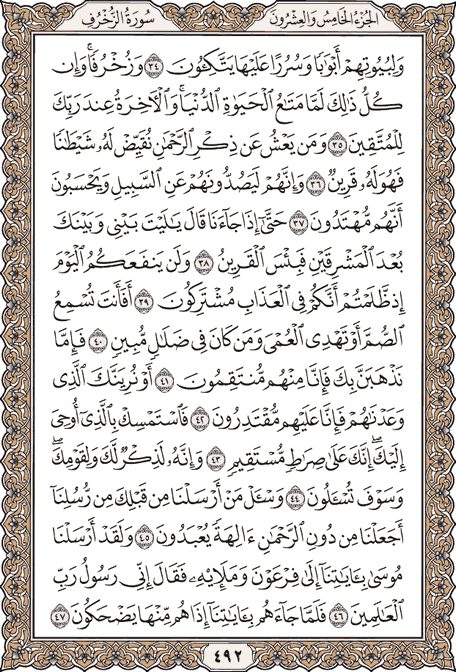 الجزء الخامس والعشرون سورة الزخرف
وَلِبُيُوتِهِمْ أَبْوَٰبًا وَسُرُرًا عَلَيْهَا يَتَّكِـُٔونَ ٣٤ وَزُخْرُفًا ۚ وَإِن
كُلُّ ذَٰلِكَ لَمَّا مَتَٰعُ ٱلْحَيَوٰةِ ٱلدُّنْيَا ۚ وَٱلْـَٔاخِرَةُ عِندَ رَبِّكَ
لِلْمُتَّقِينَ ٣٥ وَمَن يَعْشُ عَن ذِكْرِ ٱلرَّحْمَٰنِ نُقَيِّضْ لَهُۥ شَيْطَٰنًا
فَهُوَ لَهُۥ قَرِينٌ ٣٦ وَإِنَّهُمْ لَيَصُدُّونَهُمْ عَنِ ٱلسَّبِيلِ وَيَحْسَبُونَ
أَنَّهُم مُّهْتَدُونَ ٣٧ حَتَّىٰٓ إِذَا جَآءَنَا قَالَ يَٰلَيْتَ بَيْنِى وَبَيْنَكَ
بُعْدَ ٱلْمَشْرِقَيْنِ فَبِئْسَ ٱلْقَرِينُ ٣٨ وَلَن يَنفَعَكُمُ ٱلْيَوْمَ
إِذ ظَّلَمْتُمْ أَنَّكُمْ فِى ٱلْعَذَابِ مُشْتَرِكُونَ ٣٩ أَفَأَنتَ تُسْمِعُ
ٱلصُّمَّ أَوْ تَهْدِى ٱلْعُمْىَ وَمَن كَانَ فِى ضَلَٰلٍ مُّبِينٍ ٤٠ فَإِمَّا
نَذْهَبَنَّ بِكَ فَإِنَّا مِنْهُم مُّنتَقِمُونَ ٤١ أَوْ نُرِيَنَّكَ ٱلَّذِى
وَعَدْنَٰهُمْ فَإِنَّا عَلَيْهِم مُّقْتَدِرُونَ ٤٢ فَٱسْتَمْسِكْ بِٱلَّذِىٓ أُوحِىَ
إِلَيْكَ ۖ إِنَّكَ عَلَىٰ صِرَٰطٍ مُّسْتَقِيمٍ ٤٣ وَإِنَّهُۥ لَذِكْرٌ لَّكَ وَلِقَوْمِكَ ۖ
وَسَوْفَ تُسْـَٔلُونَ ٤٤ وَسْـَٔلْ مَنْ أَرْسَلْنَا مِن قَبْلِكَ مِن رُّسُلِنَآ
أَجَعَلْنَا مِن دُونِ ٱلرَّحْمَٰنِ ءَالِهَةً يُعْبَدُونَ ٤٥ وَلَقَدْ أَرْسَلْنَا
مُوسَىٰ بِـَٔايَٰتِنَآ إِلَىٰ فِرْعَوْنَ وَمَلَإِي۟هِۦ فَقَالَ إِنِّى رَسُولُ رَبِّ
ٱلْعَٰلَمِينَ ٤٦ فَلَمَّا جَآءَهُم بِـَٔايَٰتِنَآ إِذَا هُم مِّنْهَا يَضْحَكُونَ ٤٧
٤٩٢